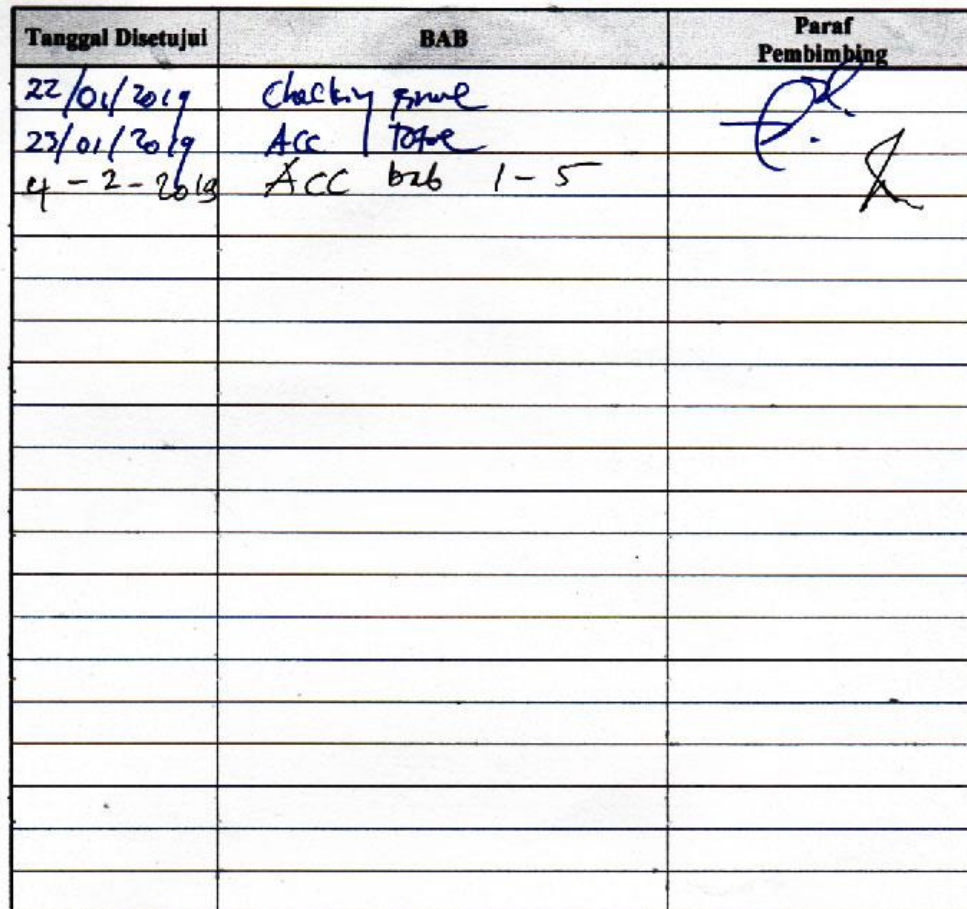 Tanggal Disetujui BAB Paraf
Pembimbing
22/01/2019 Checking
23/01/2019 ACC
4 - 2 - 2019 ACC bab 1 - 5